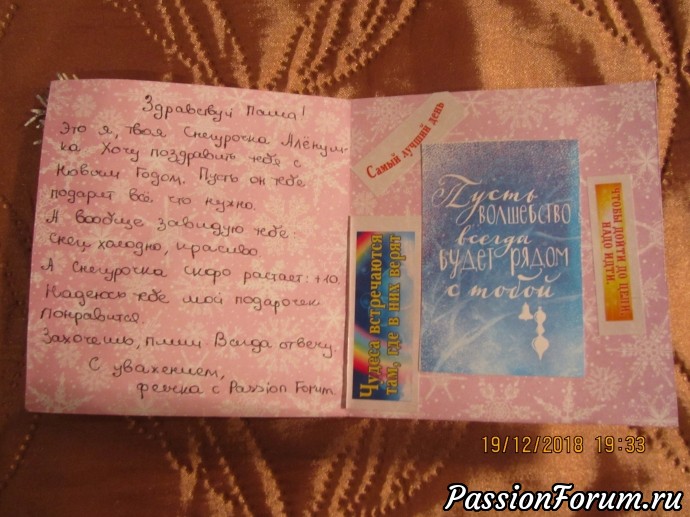 Здравствуй Лама!
Это я, твоя Снегурочка Алёнуш-
ка Хочу поздравить тебя с
Новым Годом. Пусть он тебе
подарит всё, что нужно.
А вообще завидую тебе:
снег, холодно, красиво
А Снегурочка скоро растает: +10
Надеюсь тебе мой подарочек
понравится.
Захочешь, пиши Всегда отвечу.
С уважением,
феечка с Passion Forum.
Самый лучший день
Чудеса встречаются
там, где в них верят
Пусть
волшебство
всегда
будет рядом
с тобой
ЧТОБЫ ДОЙТИ ДО ЦЕЛИ,
НАДО ИДТИ.
19/12/2018 19:33
PassionForum.ru